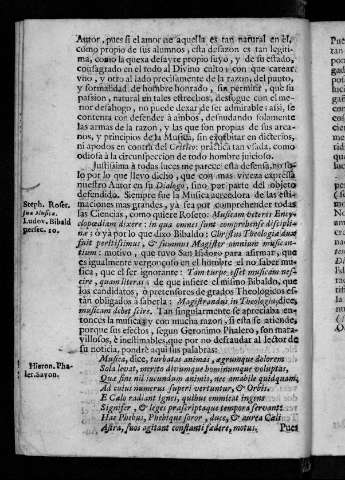 Autor, pues si el amor ne aquella es tan natural en èl,
como propio de sus alumnos, esta desazon es tan legiti-
ma, como la quexa desayre propio suyo, y de su estado,
consagrado en el todo al Divino culto: con que carear
vno, y otro al lado precisamente de la razon, del punto,
y formalidad de hombre honrado, sin permitir, que su
passion, natural en tales estrechos, desfogue con el me-
nor desahogo, no puede dexar de ser admirable; assi, se
contenta con defender à ambos, desnudando solamente
las armas de la razon, y las que son propias de sus arca-
nos, y principios de la Musica, sin exorbitar en dicterios,
ni apodos en contra del Critico: práctica tan vsada, como
odiosa à la circunspeccion de todo hombre juicioso.
Justissima à todas luces me parece esta defensa, no so-
lo por lo que llevo dicho, que con mas viveza expressa
nuestro Autor en su Dialogo, sino por parte del objeto
defendido. Siempre fue la Musica acreedora de las esti-
maciones mas grandes, yà sea por comprehender todas
Steph. Roser.
sua Musica.
las Ciencias, como quiere Roseto: Musicam veteris Ency-
clopædiam dixere: in qua omnes sunt comprehensæ discipli-
Ludov. Bibald
persec. 10.
næ: ò yà por lo que dixo Bibaldo: Christus Theologiæ dux
fuit peritissimus, & summus Magister omnium musican-
tium: motivo, que tuvo San Isidoro para afirmar, que
es igualmente vergonçoso en el hombre el no saber mu-
sica, que el ser ignorante: Tam turpe esset musicam nes-
cire, quam literas: de que infiere el mismo Bibaldo, que
los candidatos, ò pretensores de grados Theologicos es-
tàn obligados à saberla: Magistrandus in Theologia, dice,
musicam debet scire. Tan singularmente se apreciaba en-
tonces la musica; y con mucha razon, si esta se atiende,
porque sus efectos, segun Geronimo Phalero, son mara-
villosos, è inestimables, que por no defraudar al lector de
su noticia, pondrè aqui sus palabras:
Hieron. Pha-
ler. Sayon.
Musica, dice, turbatas animas, ægrumque dolorem
Sola levat, merito divumque hominumque voluptas,
Qua sine nil iucundum animis, nec amabile quidquam,
Ad cuius numeros superi vertuntur, & Orbis.
E Calo radiant ignes, quibus emmicat ingens
Signifer, & leges præscriptaque tempora servant:
Hac Phebus, Phebique soror, duce, & aurea Cæli
Astra, suos agitant constanti fædere, motus.
Pues